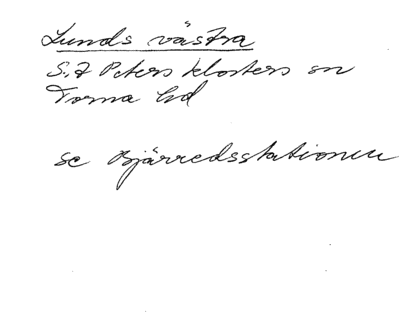 Lunds västra
S:t Peters klosters sn
Torna hd
se Bjärredsstationen